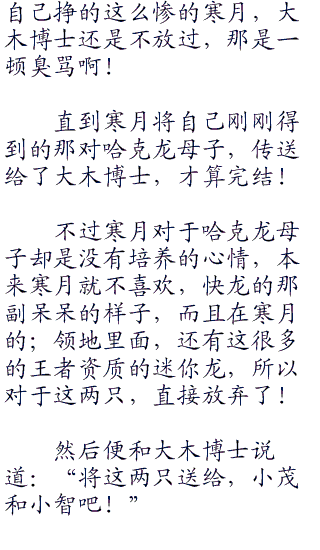 自己挣的这么惨的寒月，大
木博士还是不放过，那是一
顿臭骂啊！
直到寒月将自己刚刚得
到的那对哈克龙母子，传送
给了大木博士，才算完结！
不过寒月对于哈克龙母
子却是没有培养的心情，本
来寒月就不喜欢，快龙的那
副呆呆的样子，而且在寒月
的；领地里面，还有这很多
的王者资质的迷你龙，所以
对于这两只，直接放弃了！
然后便和大木博士说
道：“将这两只送给，小茂
和小智吧！”